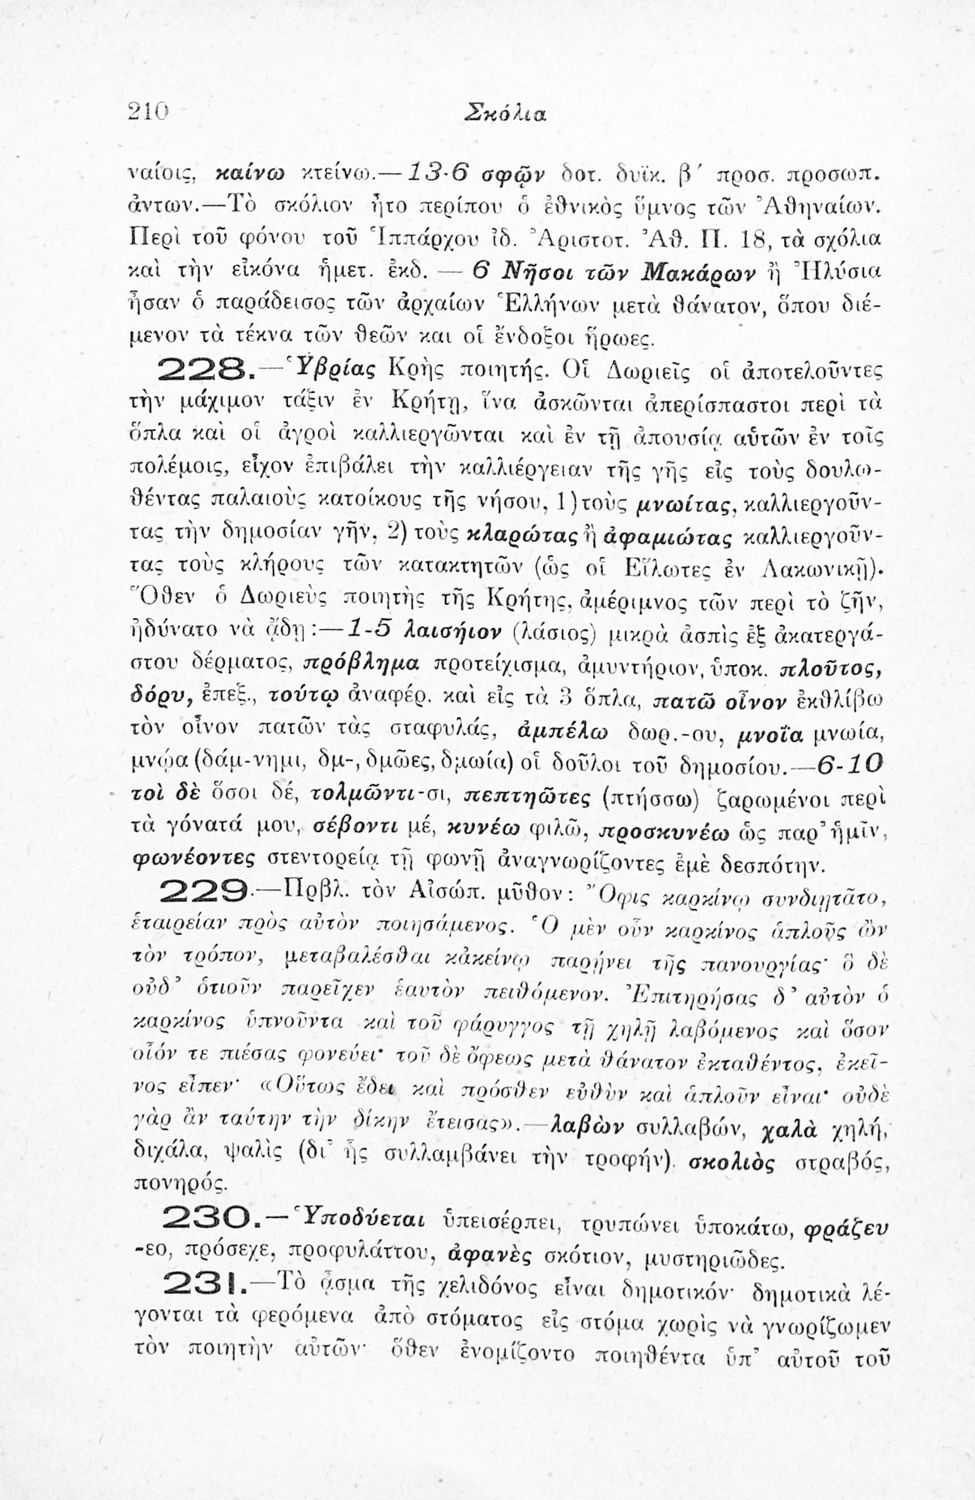 210 Σκόλια
ναίοις, καίνω κτείνω.—13-6 σφῷν δοτ. δυϊκ. β΄ προσ. προσωπ.
ἀντων.—Τὸ σκόλιον ἦτο περίπου ὁ ἐθνικὸς ὕμνος τῶν Ἀθηναίων.
Περὶ τοῦ φόνου τοῦ Ἱππάρχου ἰδ. Ἀριστοτ. Ἀθ. Π. 18, τὰ σχόλια
καὶ τὴν εἰκόνα ἡμετ. ἐκδ. — 6 Νῆσοι τῶν Μακάρων ἢ Ἠλύσια
ἦσαν ὁ παράδεισος τῶν ἀρχαίων Ἑλλήνων μετὰ θάνατον, ὅπου διέ-
μενον τὰ τέκνα τῶν θεῶν και οἱ ἔνδοξοι ἥρωες.
228.—Ὑβρίας Κρὴς ποιητής. Οἱ Δωριεῖς οἱ ἀποτελοῦντες
τὴν μάχιμον τάξιν ἐν Κρήτῃ, ἵνα ἀσκῶνται ἀπερίσπαστοι περὶ τὰ
ὅπλα καὶ οἱ ἀγροὶ καλλιεργῶνται καὶ ἐν τῇ ἀπουσίᾳ αὑτῶν ἐν τοῖς
πολέμοις, εἶχον ἐπιβάλει τὴν καλλιέργειαν τῆς γῆς εἰς τοὺς δουλω-
θέντας παλαιοὺς κατοίκους τῆς νήσου, 1) τοὺς μνωίτας, καλλιεργοῦν-
τας τὴν δημοσίαν γῆν, 2) τοὺς κλαρώτας ἢ ἀφαμιώτας καλλιεργοῦν-
τας τοὺς κλήρους τῶν κατακτητῶν (ὡς οἱ Εἵλωτες ἐν Λακωνικῇ).
Ὅθεν ὁ Δωριεὺς ποιητὴς τῆς Κρήτης, ἀμέριμνος τῶν περὶ τὸ ζῆν,
ἠδύνατο νὰ ᾄδῃ :—1-5 λαισήιον (λάσιος) μικρὰ ἀσπὶς ἐξ ἀκατεργά-
στου δέρματος, πρόβλημα προτείχισμα, ἀμυντήριον, ὑποκ. πλοῦτος,
δόρυ, ἐπεξ., τούτῳ ἀναφέρ. καὶ εἰς τὰ 3 ὅπλα, πατῶ οἶνον ἐκθλίβω
τὸν οἶνον πατῶν τὰς σταφυλάς, ἀμπέλω δωρ.-ου, μνοΐα μνωία,
μνῴα (δάμ-νημι, δμ-, δμῶες, δμωία) οἱ δοῦλοι τοῦ δημοσίου.—6-10
τοὶ δὲ ὅσοι δέ, τολμῶντι-σι, πεπτηῶτες (πτήσσω) ζαρωμένοι περὶ
τὰ γόνατά μου, σέβοντι μέ, κυνέω φιλῶ, προσκυνέω ὡς παρ' ἡμῖν,
φωνέοντες στεντορείᾳ τῇ φωνῇ ἀναγνωρίζοντες ἐμὲ δεσπότην.
229.—Πρβλ. τὸν Αἰσώπ. μῦθον : Ὄφις καρκίνῳ συνδιῃτᾶτο,
ἑταιρείαν πρὸς αὐτὸν ποιησάμενος. Ὁ μὲν οὖν καρκίνος ἁπλοῦς ὢν
τὸν τρόπον, μεταβαλέσθαι κἀκείνῳ παρῄνει τῆς πανουργίας· ὁ δὲ
οὐδ' ὁτιοῦν παρεῖχεν ἑαυτὸν πειθόμενον. Ἐπιτηρήσας δ' αὐτὸν ὁ
καρκίνος ὑπνοῦντα καὶ τοῦ φάρυγγος τῇ χηλῇ λαβόμενος καὶ ὅσον
οἷόν τε πιέσας φονεύει· τοῦ δὲ ὄφεως μετὰ θάνατον ἐκταθέντος, ἐκεῖ-
νος εἶπεν· «Οὕτως ἔδει καὶ πρόσθεν εὐθὺν καὶ ἁπλοῦν εἶναι· οὐδὲ
γὰρ ἂν ταύτην τὴν δίκην ἔτεισας».—λαβὼν συλλαβών, χαλὰ χηλή,
διχάλα, ψαλὶς (δι' ἧς συλλαμβάνει τὴν τροφήν), σκολιὸς στραβός,
πονηρός.
230.—Ὑποδύεται ὑπεισέρπει, τρυπώνει ὑποκάτω, φράζευ
-εο, πρόσεχε, προφυλάττου, ἀφανὲς σκότιον, μυστηριῶδες.
231.—Τὸ ᾆσμα τῆς χελιδόνος εἶναι δημοτικόν· δημοτικὰ λέ-
γονται τὰ φερόμενα ἀπὸ στόματος εἰς στόμα χωρὶς νὰ γνωρίζωμεν
τὸν ποιητὴν αὐτῶν· ὅθεν ἐνομίζοντο ποιηθέντα ὑπ' αὐτοῦ τοῦ